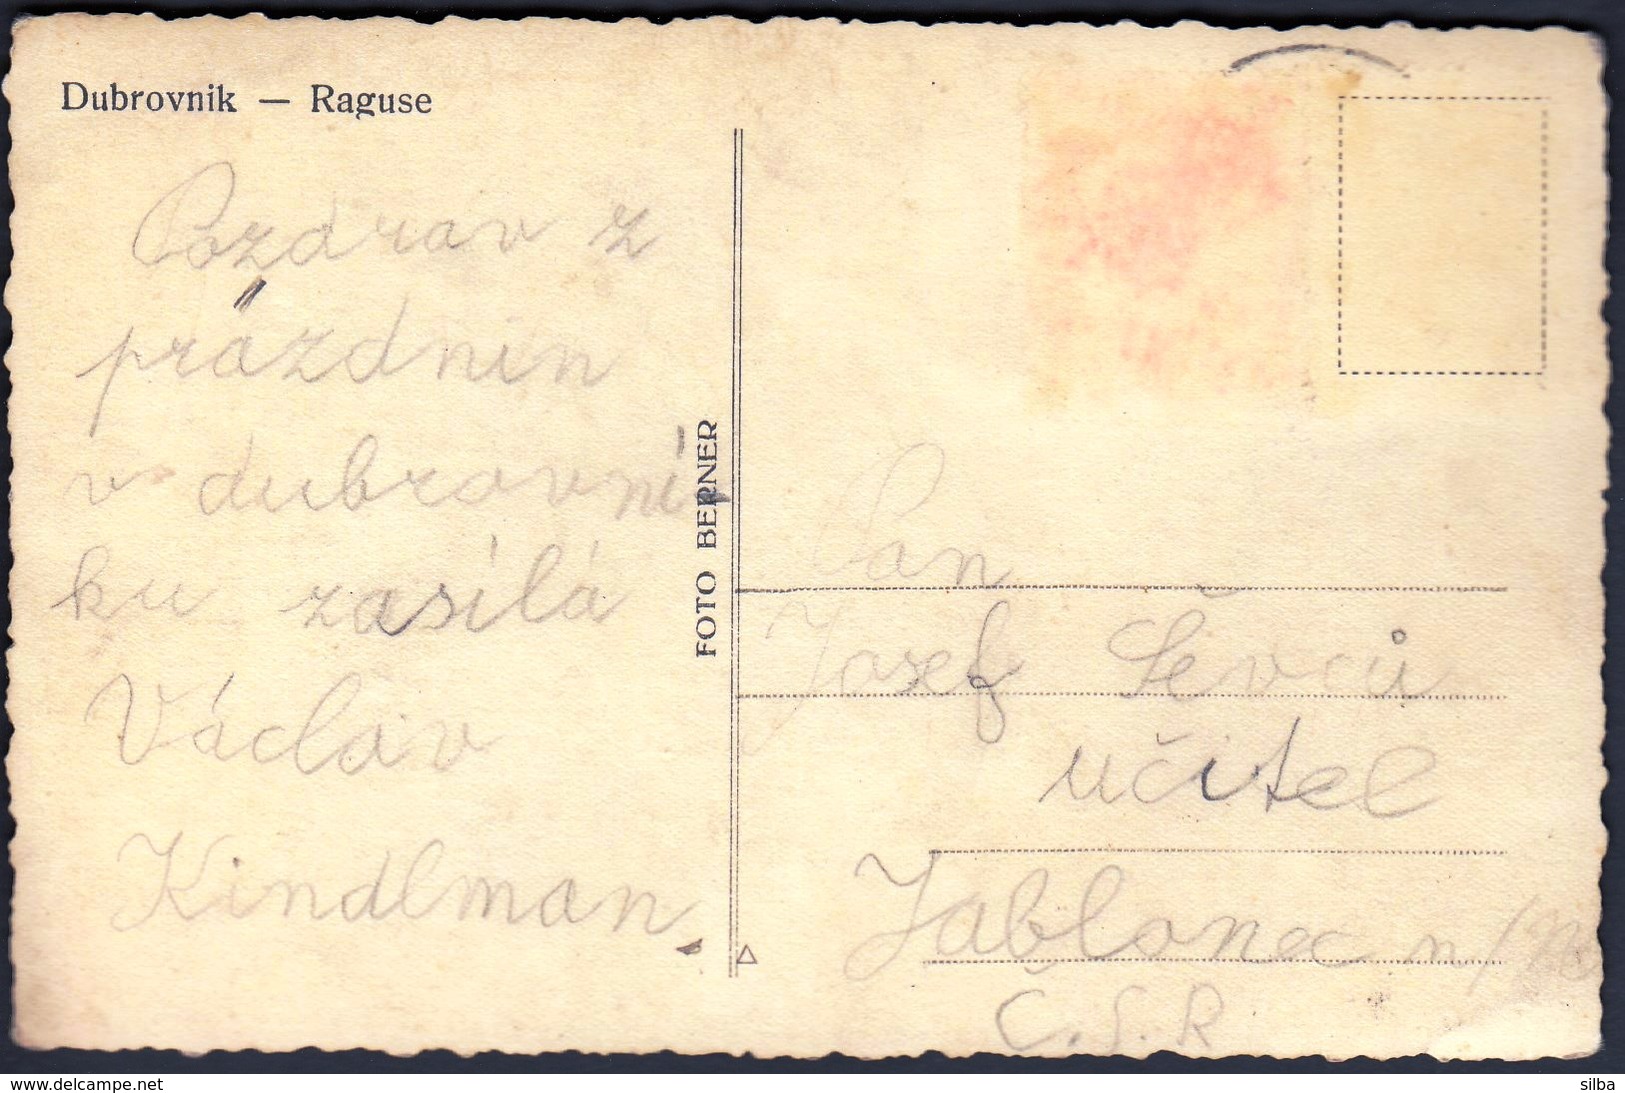 Dubrovnik — Raguse
Pozdrav z
prázdnin
v dubrovní
ku zasílá
Václav
Kindlman.
FOTO BERNER
Pan
Josef Ševců
učitel
Jablonec n/N
Č.S.R
delcampe.net
silba